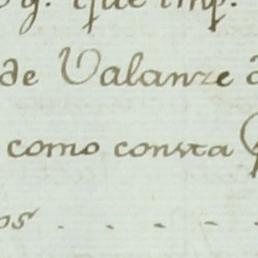 g. que imp.
de Valanze
como consta
os - - - -